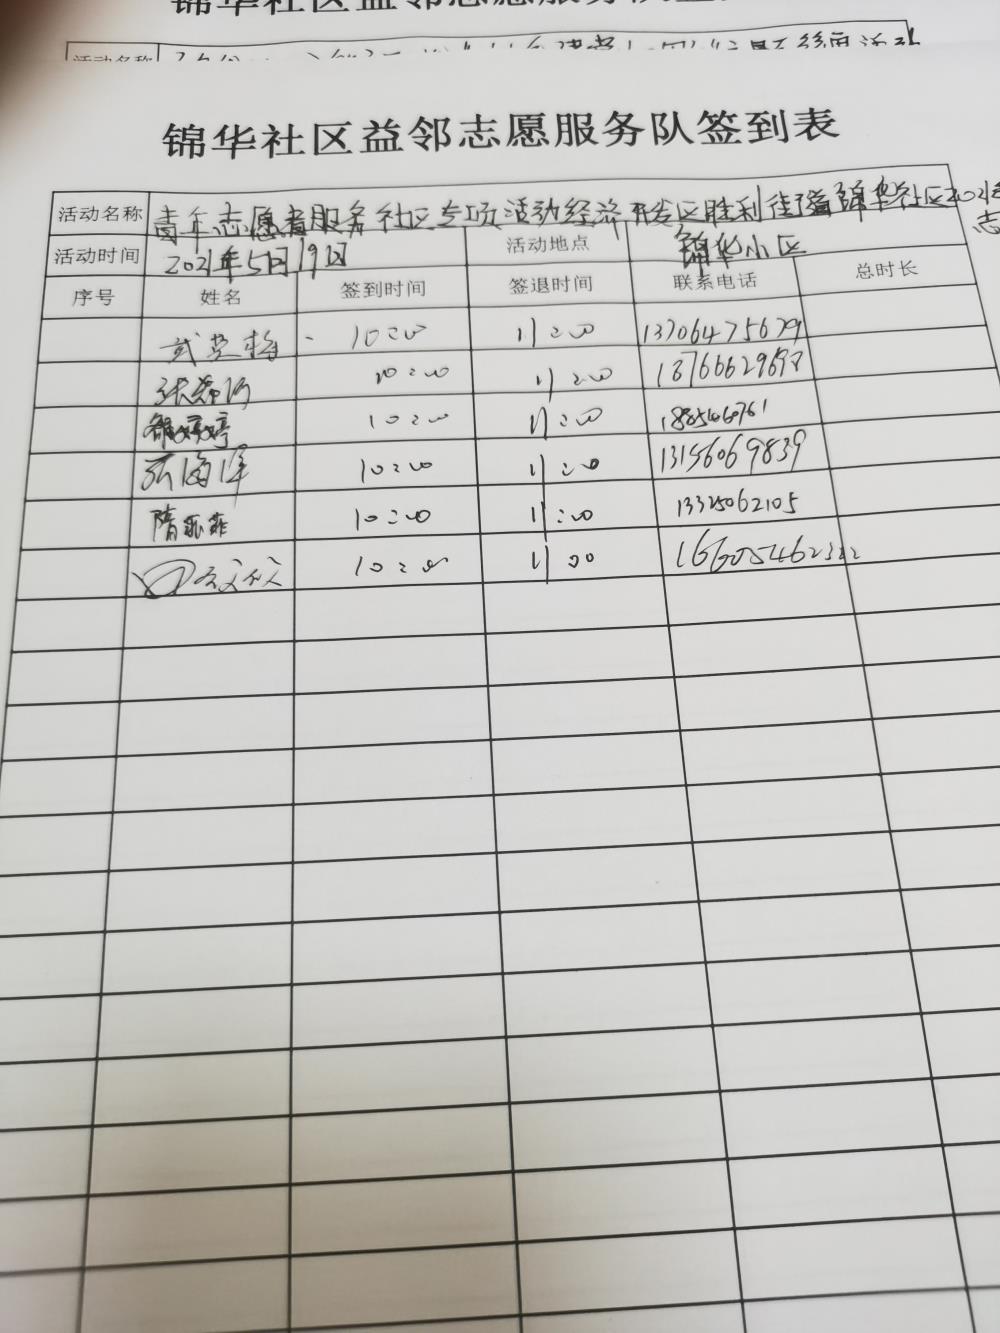 锦华社区益邻志愿服务队签
活动名称
锦华社区益邻志愿服务队签到表
活动名称 青年志愿者服务社区专项活动经济开发区胜利街道锦华社区2021年
志
活动时间 2021年5月19日 活动地点 锦华小区
序号 姓名 签到时间 签退时间 联系电话 总时长
10:00 11:00 13706475679
10:00 11:00
婷婷 10:00 11:00 1885460761
张海洋 10:00 11:00 13156069839
隋菲菲 10:00 11:00 13325062105
10:00 11:00 16605462322